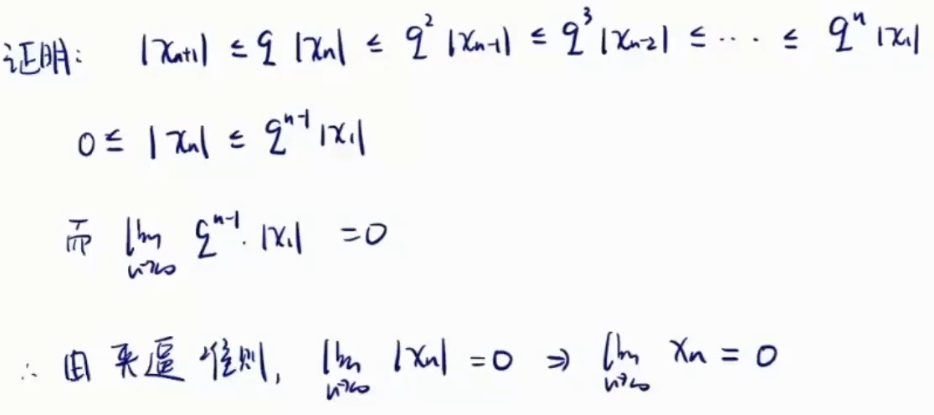 证明: |xₙ₊₁| ≤ q |xₙ| ≤ q² |xₙ₋₁| ≤ q³ |xₙ₋₂| ≤ ⋯ ≤ qⁿ |x₁|
0 ≤ |xₙ| ≤ qⁿ⁻¹ |x₁|
而 lim n→∞ qⁿ⁻¹ · |x₁| = 0
∴ 由夹逼准则, lim n→∞ |xₙ| = 0 ⇒ lim n→∞ xₙ = 0